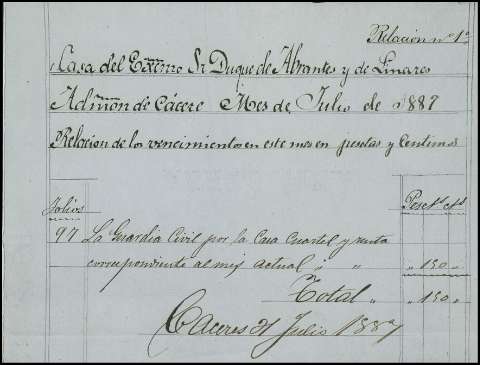 Relacion nº 1º
Casa del Exmo Sr Duque de Abrantes y de Linares
Admon de Cácere Mes de Julio de 1887
Relacion de los vencimientos en este mes en pesetas y Centimos
Folios Peset.s cts
97 La Guardia Civil por la Casa Cuartel y renta
correspondiente al mes actual " " " 150 "
Total " " 150 "
Caceres 31 Julio 1887